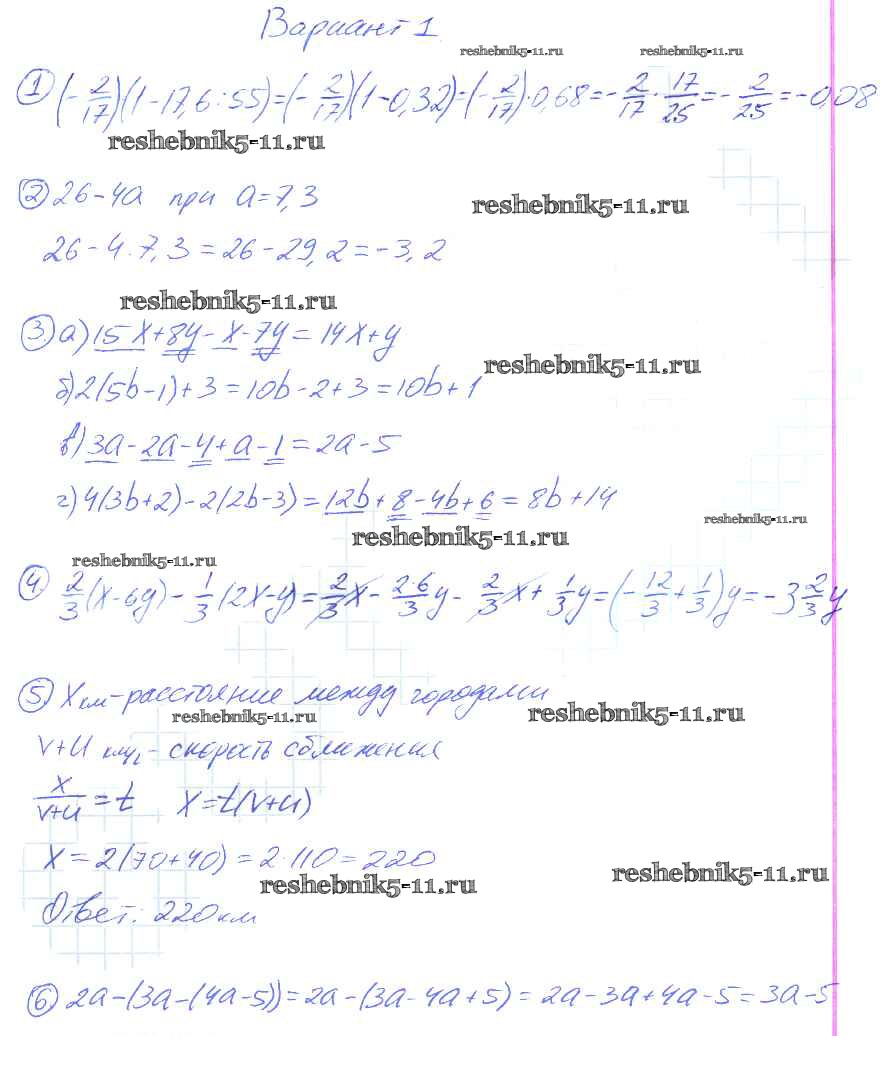 Вариант 1
reshebnik5-11.ru reshebnik5-11.ru
① (-2/17)(1-17,6:55)=(-2/17)(1-0,32)=(-2/17)·0,68=-2/17·17/25=-2/25=-0,08
reshebnik5-11.ru
② 26-4a при a=7,3
reshebnik5-11.ru
26-4·7,3=26-29,2=-3,2
reshebnik5-11.ru
③ а) 15x+8y-x-7y=14x+y
reshebnik5-11.ru
б) 2(5b-1)+3=10b-2+3=10b+1
в) 3a-2a-4+a-1=2a-5
г) 4(3b+2)-2(2b-3)=12b+8-4b+6=8b+14
reshebnik5-11.ru
reshebnik5-11.ru
reshebnik5-11.ru
④ 2/3(x-6y)-1/3(2x-y)=2/3x-2·6/3y-2/3x+1/3y=(-12/3+1/3)y=-3 2/3y
⑤ x км-расстояние между городами
reshebnik5-11.ru reshebnik5-11.ru
v+u км/ч - скорость сближения
x/v+u=t x=t(v+u)
x=2(70+40)=2·110=220
reshebnik5-11.ru reshebnik5-11.ru
Ответ: 220 км
⑥ 2a-(3a-(4a-5))=2a-(3a-4a+5)=2a-3a+4a-5=3a-5